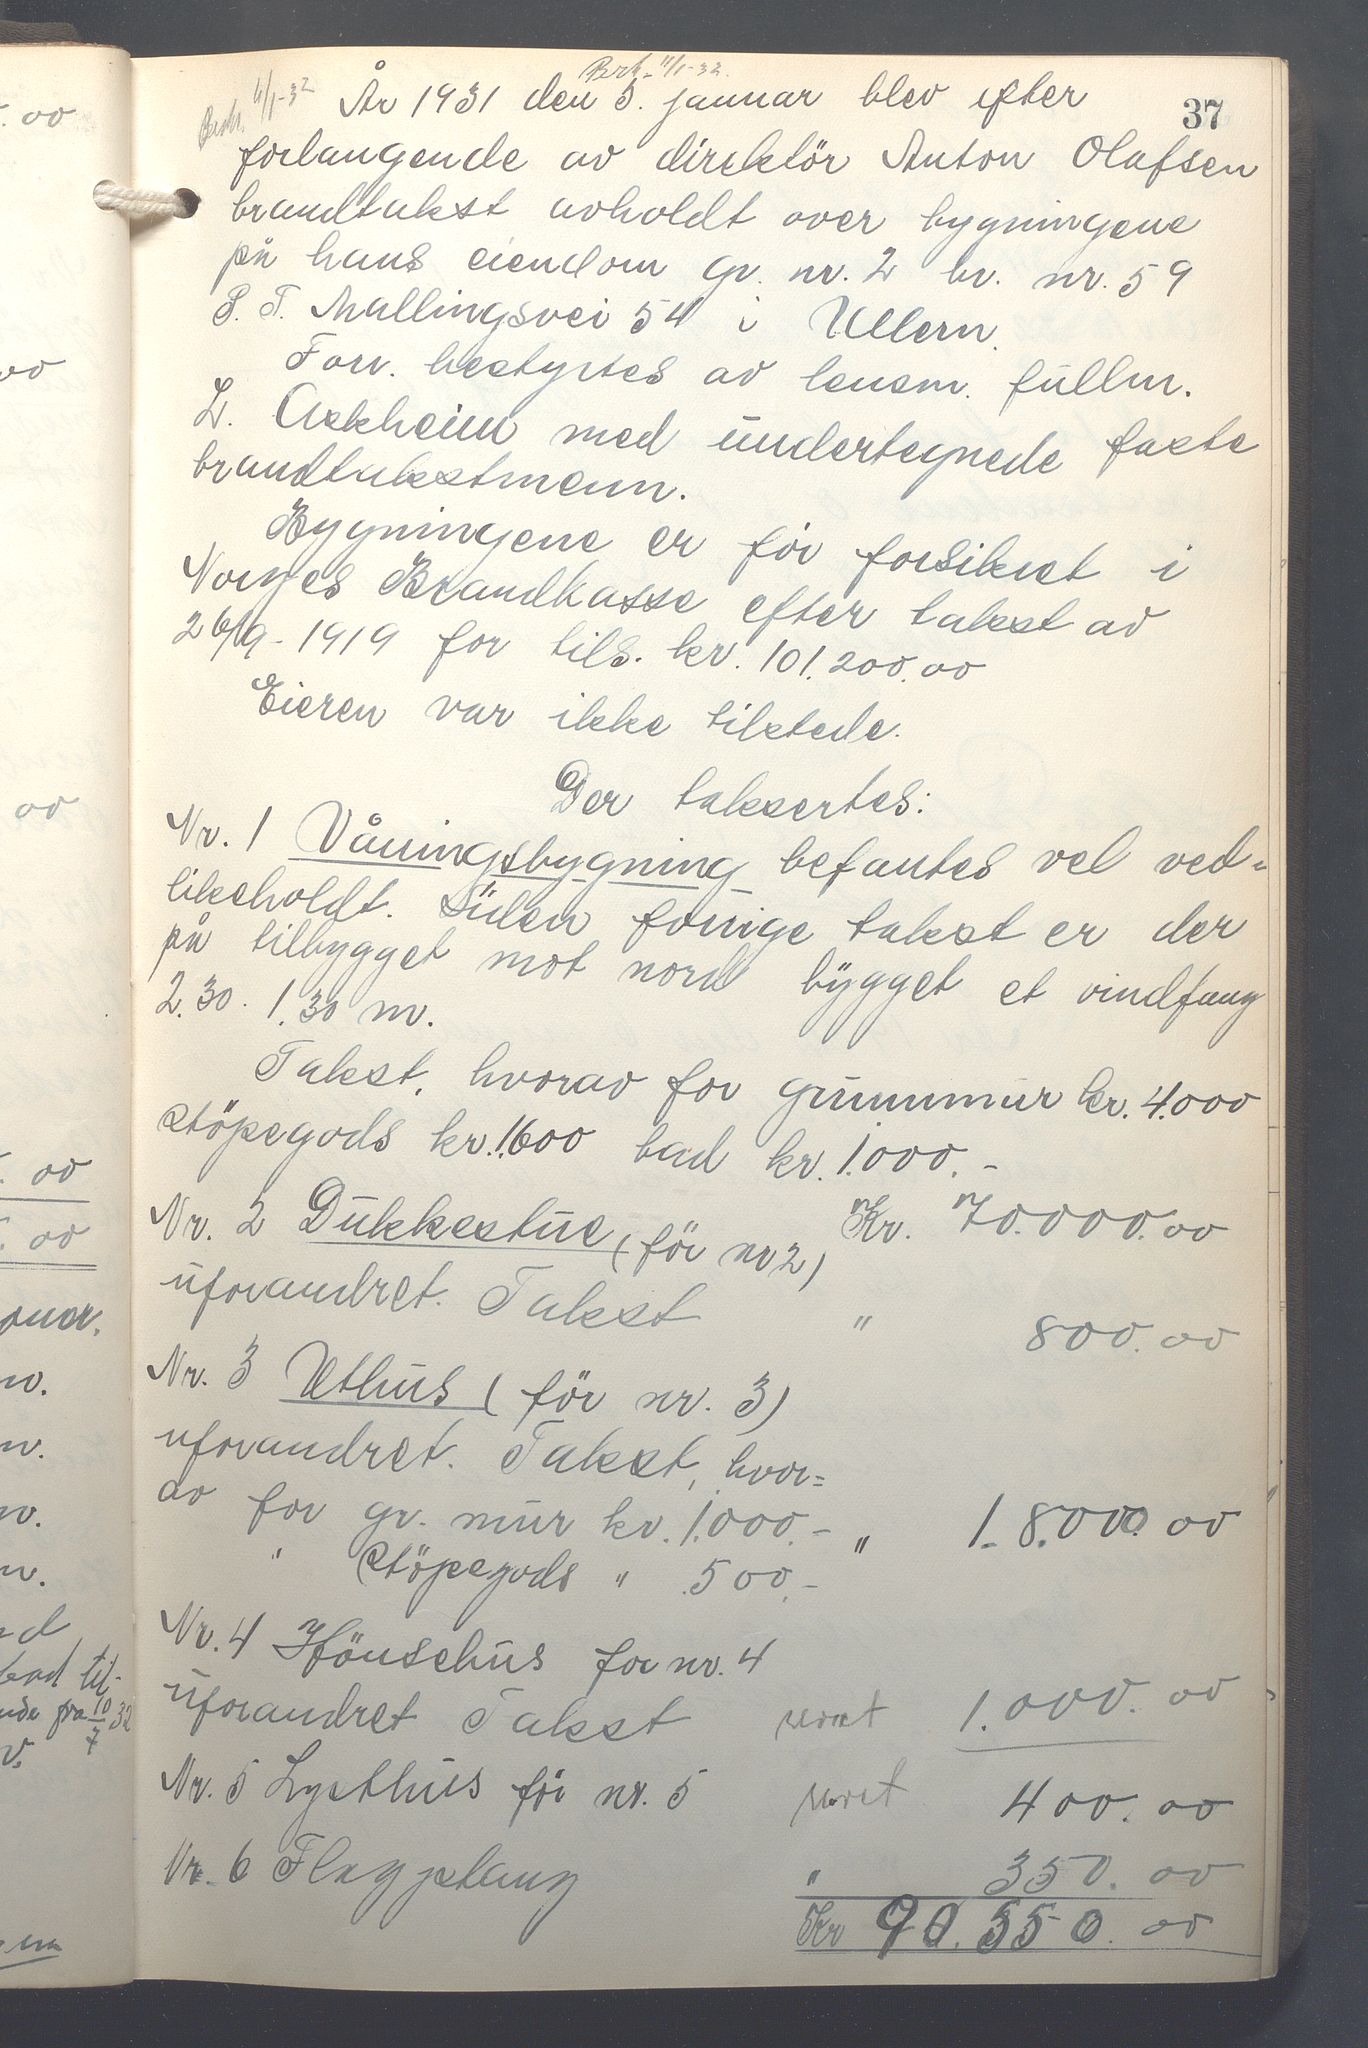 Berk. 11/1-32.
Berk. 11/1-32
37
År 1931 den 5. januar blev efter
forlangende av direktör Anton Olafsen
brandtakst avholdt over bygningene
på hans eiendom gr. nr. 2 br. nr. 59
P. T. Mallingsvei 54 i Ullern.
Forr. bestyrtes av lensm. fullm.
L. Askheim med undertegnede faste
brandtakstmenn.
Bygningene er för forsikret i
Norges Brandkasse efter takst av
26/9-1919 for tils. kr. 101.200.00
Eieren var ikke tilstede.
Der taksertes:
Nr. 1 Våningsbygning befantes vel ved-
likeholdt. Siden forrige takst er der
på tilbygget mot nord bygget et vindfang
2.30 · 1.30 m.
Takst, hvorav for grunnmur kr. 4.000
stöpegods kr. 1.600 bad kr. 1.000.-
Kr. 70.000.00
Nr. 2 Dukkestue (för nr 2)
uforandret. Takst " 800.00
Nr. 3 Uthus (för nr. 3)
uforandret. Takst, hvor=
av for gr. mur kr. 1.000.- " 18.000 00
" Stöpegods " 500.-
Nr. 4 Hönsehus för nr. 4
uforandret Takst 1.000.00
Nr. 5 Lysthus för nr. 5 400.00
Nr. 6 Flagstang " 350.00
Kr 90.550.00
. 00
00
00
. 00
. 00
m.
m.
m.
m.
d
bad til-
10
7
32